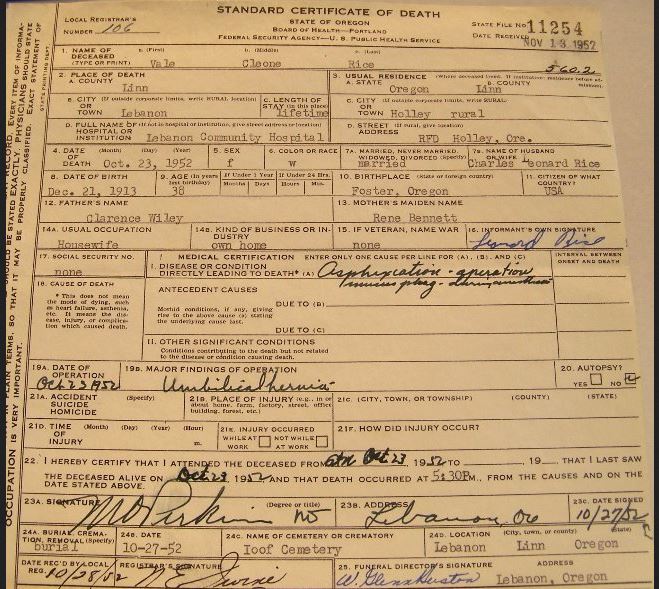 STANDARD CERTIFICATE OF DEATH
STATE OF OREGON
BOARD OF HEALTH—PORTLAND
FEDERAL SECURITY AGENCY—U. S. PUBLIC HEALTH SERVICE
LOCAL REGISTRAR'S
NUMBER 106
STATE FILE NO. 11254
DATE RECEIVED NOV 13 1952
1. NAME OF DECEASED (TYPE OR PRINT) a. (First) b. (Middle) c. (Last)
Vale Cleone Rice
560.2
2. PLACE OF DEATH
A. COUNTY
Linn
3. USUAL RESIDENCE (Where deceased lived. If institution: residence before admission).
A. STATE B. COUNTY
Oregon Linn
B. CITY (If outside corporate limits, write RURAL, location) OR TOWN
Lebanon
C. LENGTH OF STAY (in this place)
lifetime
C. CITY (If outside corporate limits, write RURAL)
Holley rural
D. FULL NAME OF HOSPITAL OR INSTITUTION (If not in hospital or institution, give street address or location)
Lebanon Community Hospital
D. STREET ADDRESS (If rural, give location)
RFD Holley, Ore.
4. DATE OF DEATH (Month) (Day) (Year)
Oct. 23, 1952
5. SEX
f
6. COLOR OR RACE
w
7A. MARRIED, NEVER MARRIED, WIDOWED, DIVORCED (Specify)
married
7B. NAME OF HUSBAND OR WIFE
Charles Leonard Rice
8. DATE OF BIRTH
Dec. 21, 1913
9. AGE (In years last birthday)
38
If Under 1 Year Months Days
If Under 24 Hrs. Hours Min.
10. BIRTHPLACE (State or foreign country)
Foster, Oregon
11. CITIZEN OF WHAT COUNTRY?
USA
12. FATHER'S NAME
Clarence Wiley
13. MOTHER'S MAIDEN NAME
Rene Bennett
14A. USUAL OCCUPATION
Housewife
14B. KIND OF BUSINESS OR INDUSTRY
own home
15. IF VETERAN, NAME WAR
none
16. INFORMANT'S OWN SIGNATURE
Leonard Rice
17. SOCIAL SECURITY NO.
none
MEDICAL CERTIFICATION ENTER ONLY ONE CAUSE PER LINE FOR (A), (B), AND (C)
INTERVAL BETWEEN ONSET AND DEATH
I. DISEASE OR CONDITION
DIRECTLY LEADING TO DEATH* (A) Asphyxiation - operation
mucus plug - during anesthesia
18. CAUSE OF DEATH
* This does not mean the mode of dying, such as heart failure, asthenia, etc. It means the disease, injury, or complication which caused death.
ANTECEDENT CAUSES
DUE TO (B)
Morbid conditions, if any, giving rise to the above cause (a) stating the underlying cause last.
DUE TO (C)
II. OTHER SIGNIFICANT CONDITIONS
Conditions contributing to the death but not related to the disease or condition causing death.
19A. DATE OF OPERATION
Oct 23 1952
19B. MAJOR FINDINGS OF OPERATION
Umbilical hernia
20. AUTOPSY?
YES NO
21A. ACCIDENT SUICIDE HOMICIDE (Specify)
21B. PLACE OF INJURY (e.g., in or about home, farm, factory, street, office building, forest, etc.)
21C. (CITY, TOWN, OR TOWNSHIP) (COUNTY) (STATE)
21D. TIME OF INJURY (Month) (Day) (Year) (Hour) m.
21E. INJURY OCCURRED
WHILE AT WORK NOT WHILE AT WORK
21F. HOW DID INJURY OCCUR?
22. I HEREBY CERTIFY THAT I ATTENDED THE DECEASED FROM Oct 23, 1952 TO 19 THAT I LAST SAW
THE DECEASED ALIVE ON Oct 23, 1952 AND THAT DEATH OCCURRED AT 5:30P. M., FROM THE CAUSES AND ON THE
DATE STATED ABOVE.
23A. SIGNATURE (Degree or title)
23B. ADDRESS
23C. DATE SIGNED
M D Perkins MD Lebanon, Ore 10/27/52
24A. BURIAL, CREMATION, REMOVAL (Specify)
burial
24B. DATE
10-27-52
24C. NAME OF CEMETERY OR CREMATORY
Ioof Cemetery
24D. LOCATION (City, town, or county) (State)
Lebanon Linn Oregon
DATE REC'D BY LOCAL REG. 10/28/52
REGISTRAR'S SIGNATURE
N E Irvine
25. FUNERAL DIRECTOR'S SIGNATURE ADDRESS
W. Glenn Huston Lebanon, Oregon